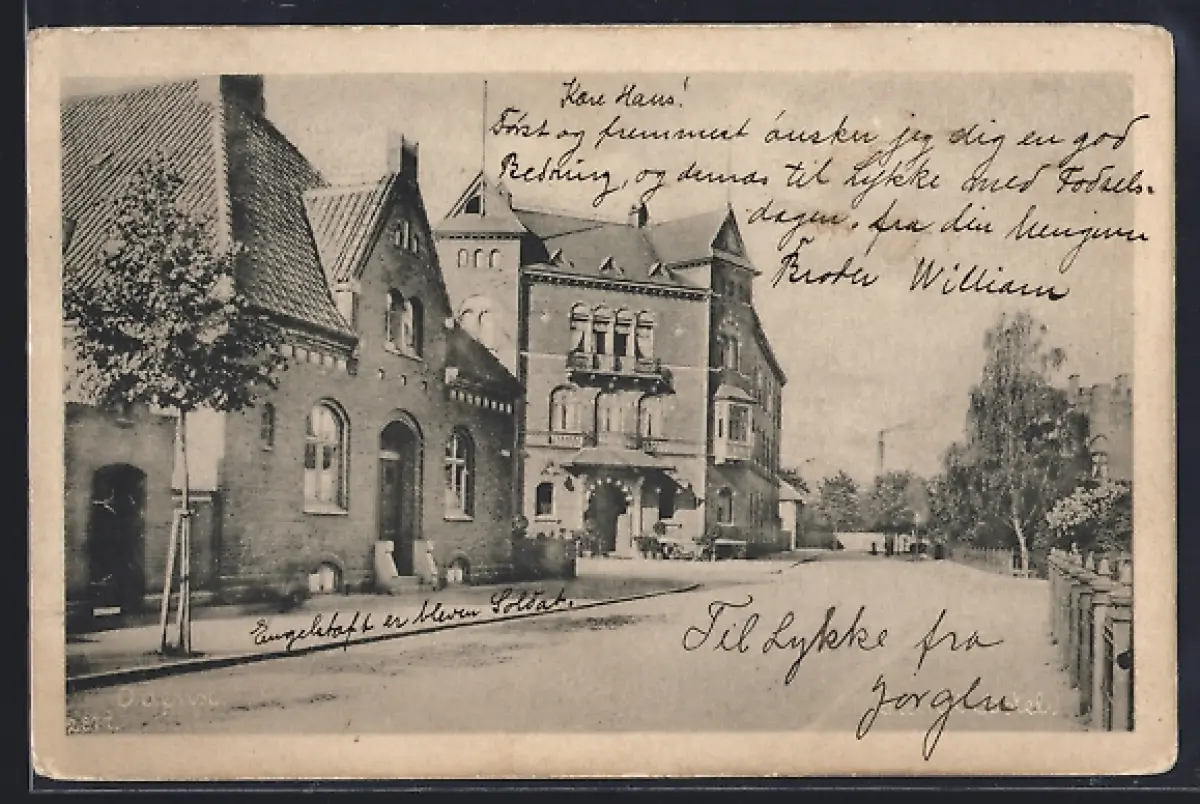 Kære Hans!
Først og fremmest ønsker jeg dig en god
Bedring, og dernæs til Lykke med Fødsels-
dagen, fra din hengivne
Broder William
Engelstoft er bleven Soldat.
Til Lykke fra
Jørgen